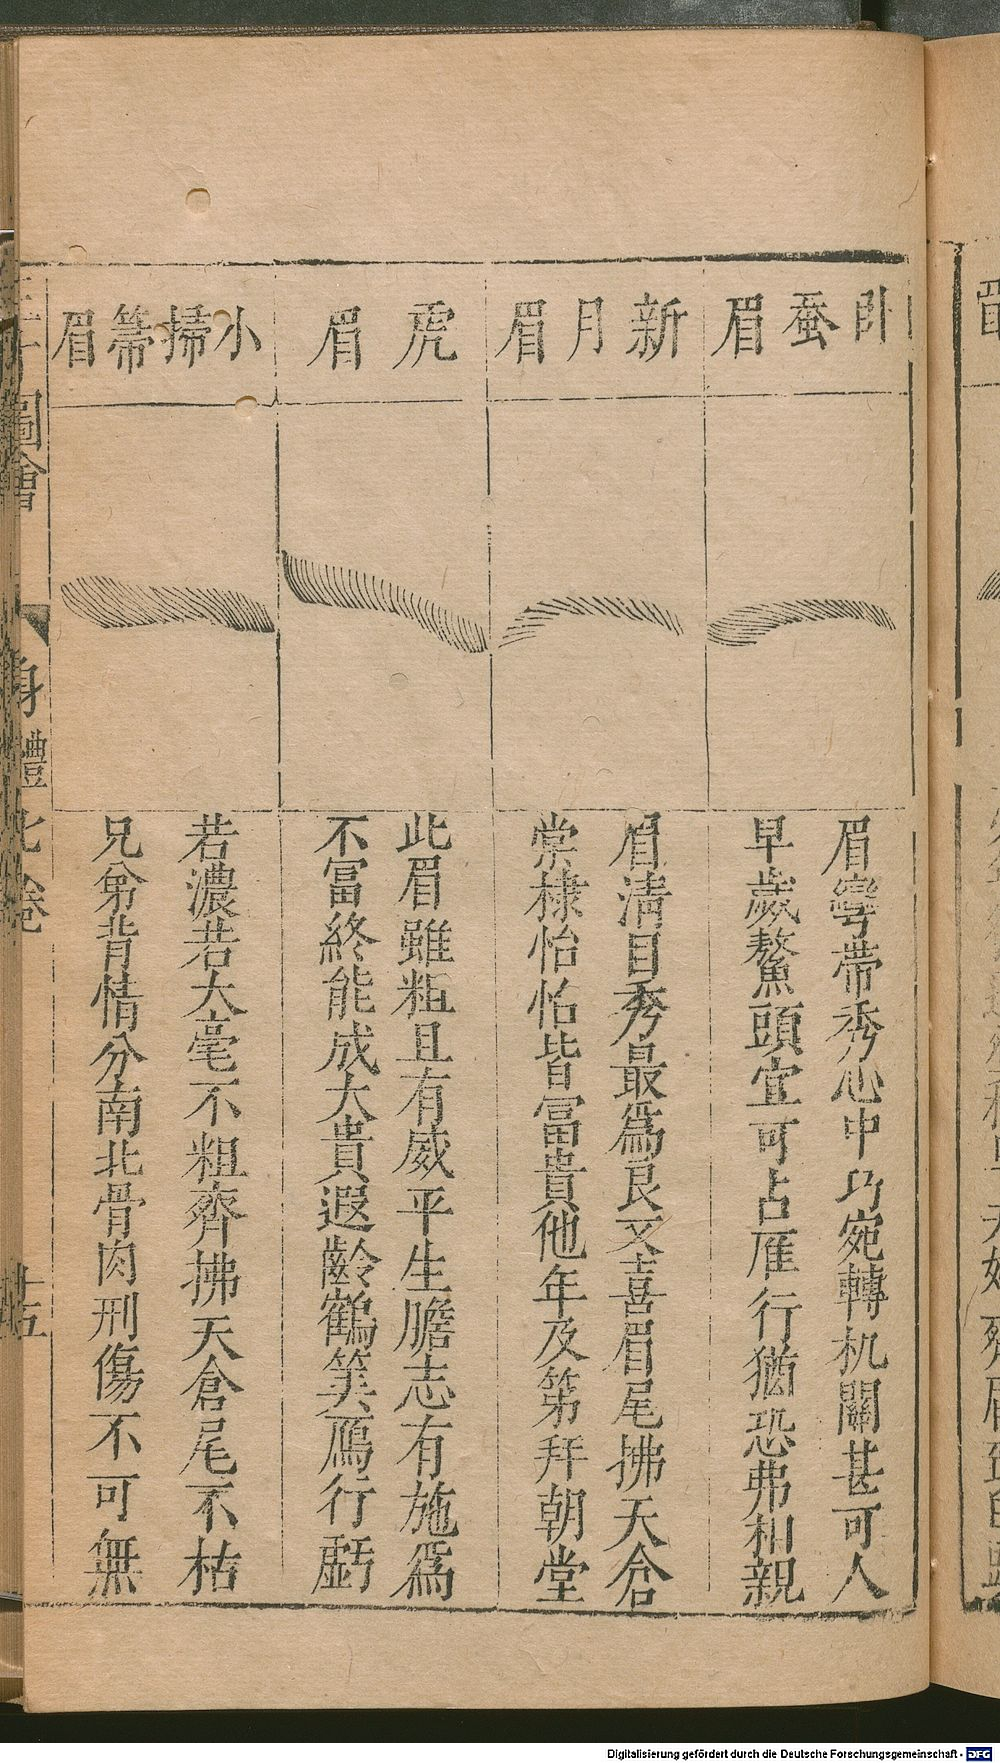 卧蚕眉
眉彎帶秀心中巧宛轉机關甚可人
早歲鰲頭宜可占雁行猶恐弗相親
新月眉
眉清目秀最爲良又喜眉尾拂天倉
棠棣怡怡皆冨貴他年及第拜朝堂
虎眉
此眉雖粗且有威平生膽志有施爲
不冨終能成大貴遐齡鶴筭鴈行虧
小掃箒眉
若濃若大毫不粗齊拂天倉尾不枯
兄弟背情分南北骨肉刑傷不可無
圖會
身體七卷
十五
Digitalisierung gefördert durch die Deutsche Forschungsgemeinschaft - DFG